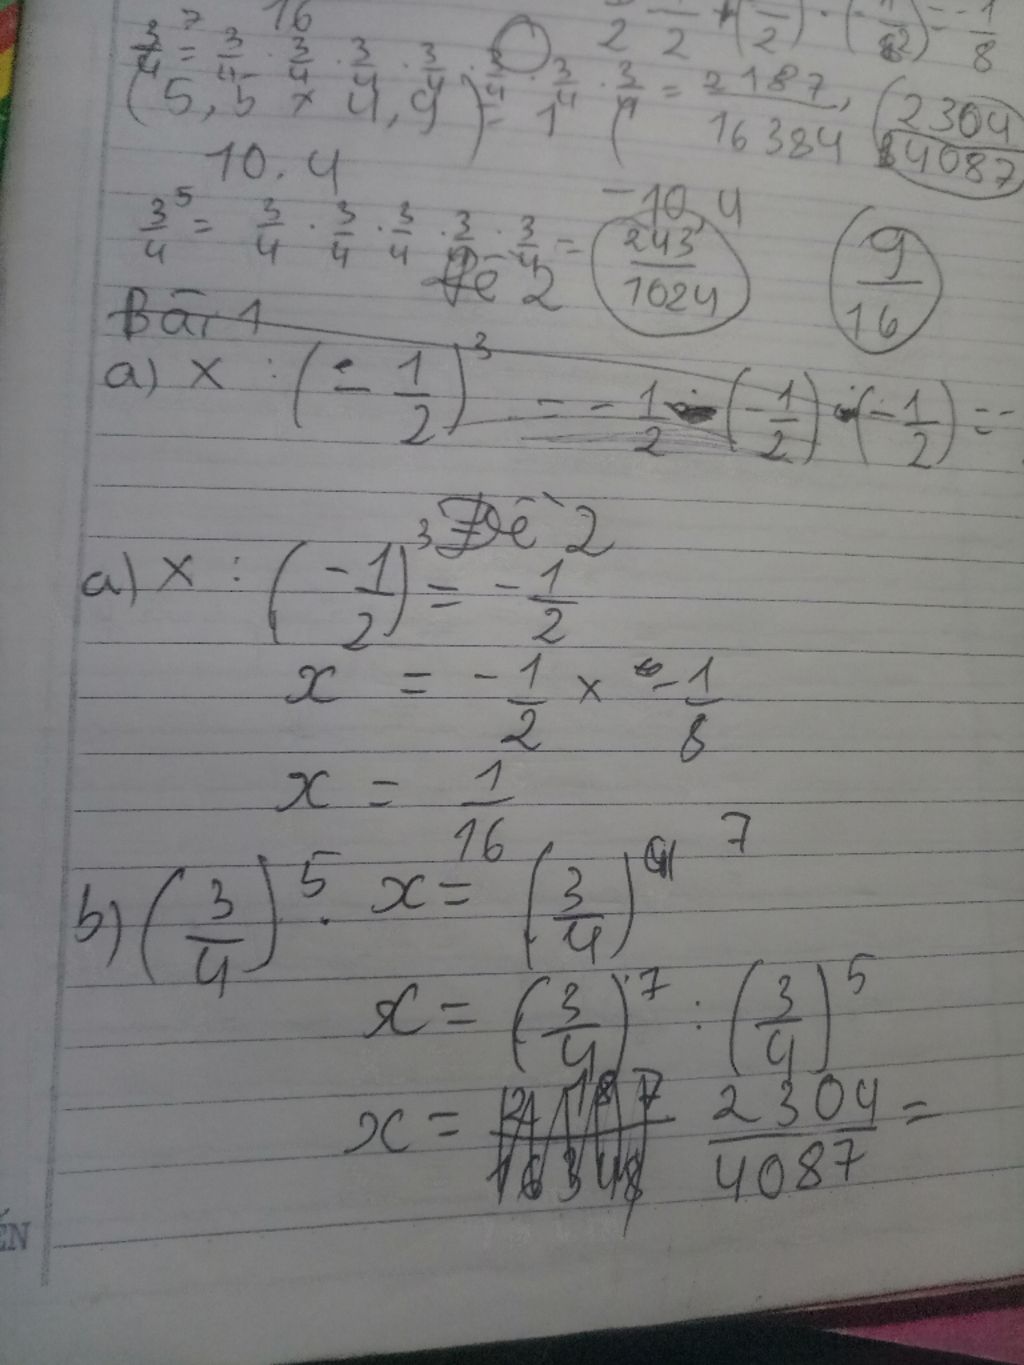 16
(3/4)^7 = 3/4 · 3/4 · 3/4 · 3/4 · 3/4 · 3/4 · 3/4 = 2187/16384, 2304/4087
(5,5 × 4,9) = 1 (
10.4
-10 4
3/4^5 = 3/4 · 3/4 · 3/4 · 3/4 · 3/4 = 243/1024
9/16
Đề 2
Bài 1
a) x : (- 1/2)^3 = - 1/2 · (-1/2) · (-1/2) = -
Đề 2
a) x : (-1/2)^3 = -1/2
x = -1/2 × -1/8
x = 1/16
b) (3/4)^5 . x = (3/4)^7
x = (3/4)^7 : (3/4)^5
x = 2304/4087 =
ẾN